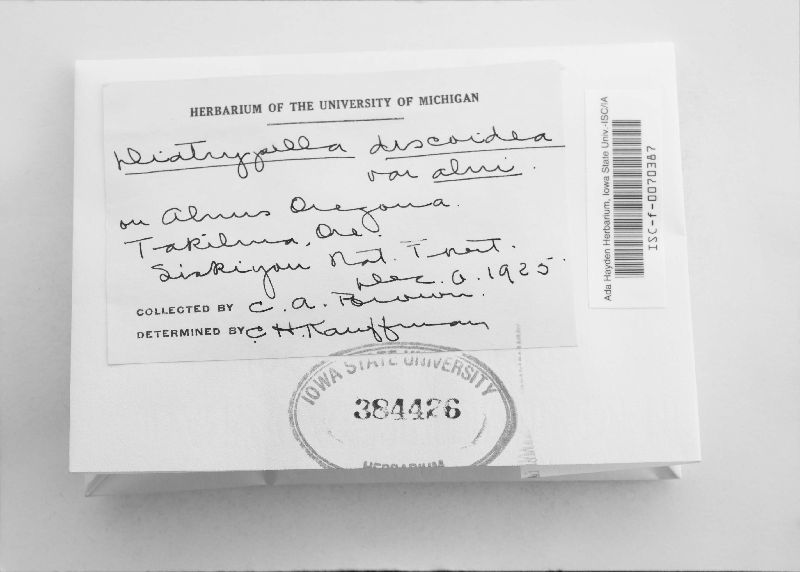 HERBARIUM OF THE UNIVERSITY OF MICHIGAN
Diatrypella discoidea
var alni.
on Alnus Oregona.
Takilma, Ore.
Siskiyou Nat. Forest.
Dec. 6. 1925.
COLLECTED BY C. A. Brown.
DETERMINED BY C H. Kauffman
IOWA STATE UNIVERSITY
384426
HERBARIUM
Ada Hayden Herbarium, Iowa State Univ.-ISC/IA
ISC-f-0070387